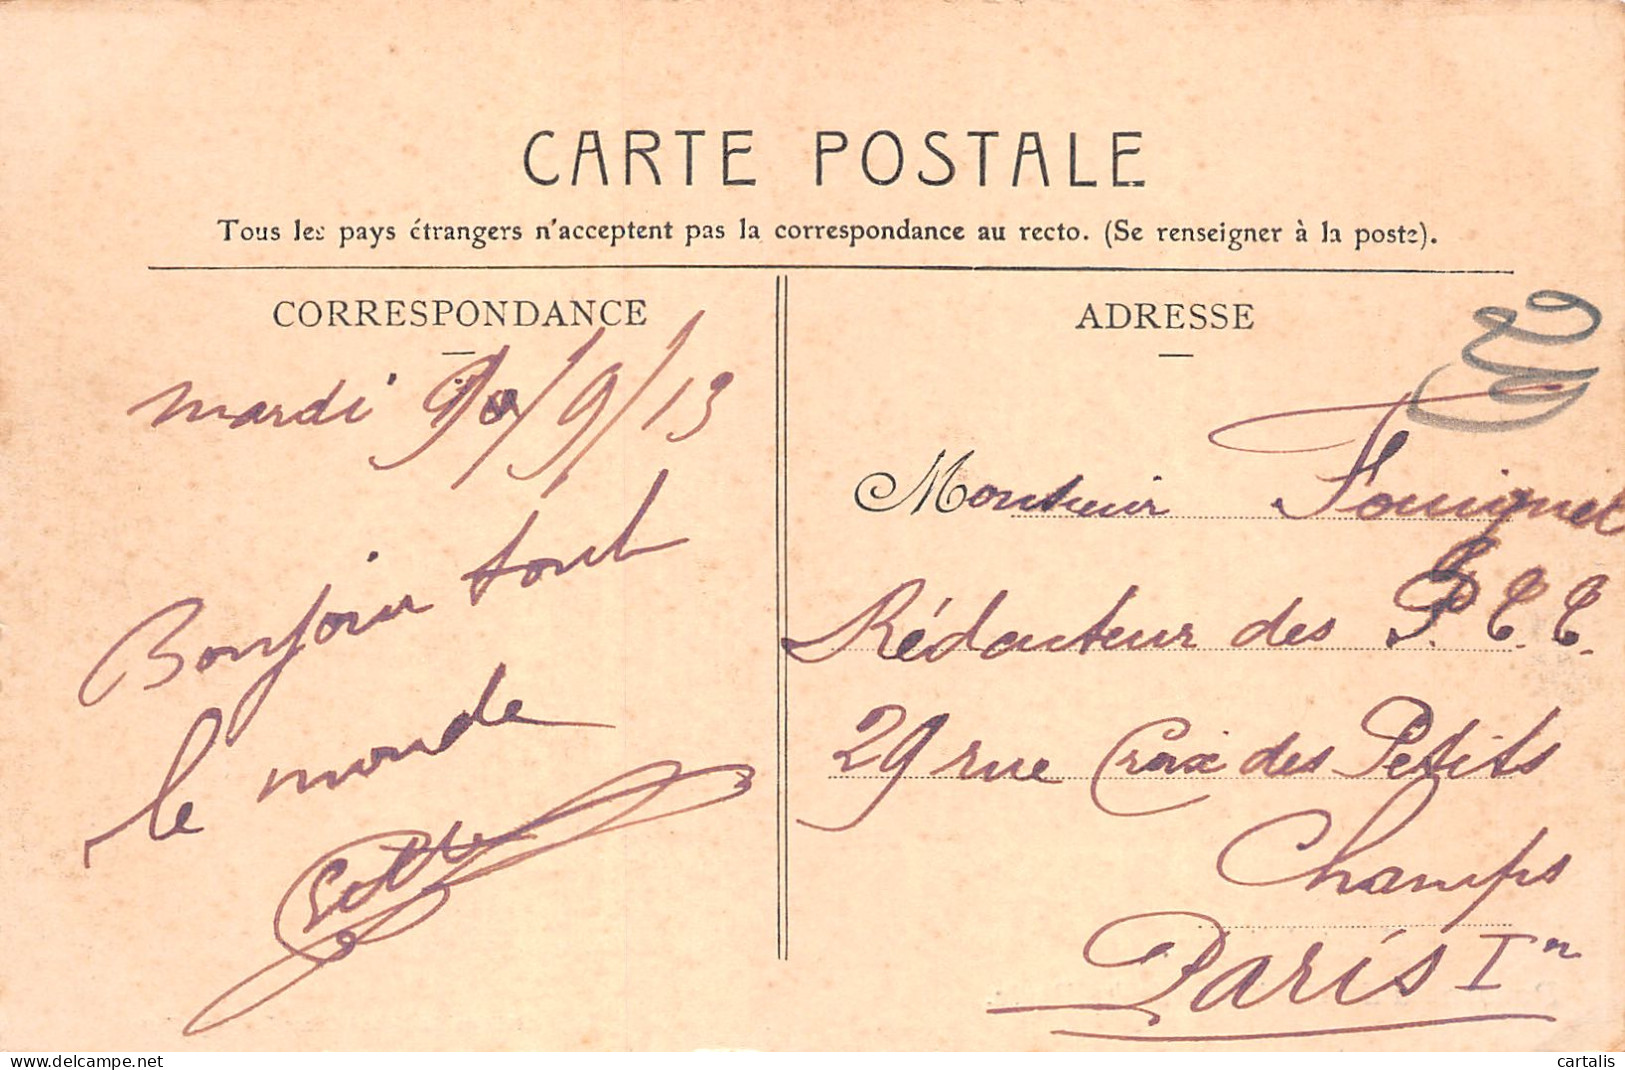 CARTE POSTALE
Tous les pays étrangers n'acceptent pas la correspondance au recto. (Se renseigner à la poste).
CORRESPONDANCE
mardi /9/13
Bonjour tout
le monde
ADRESSE
Monsieur Fouquet
Rédacteur des P.T.T.
29 rue Croix des Petits
Champs
Paris Ier
delcampe.net
cartalis